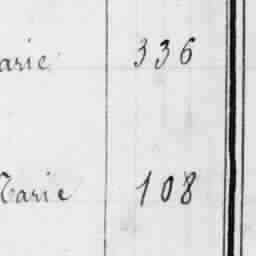 arie 336
Marie 108